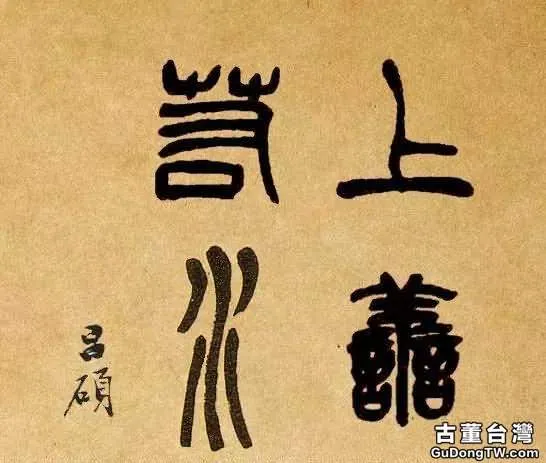 上善
若水
吕硕
古董台灣
GuDongTW.com